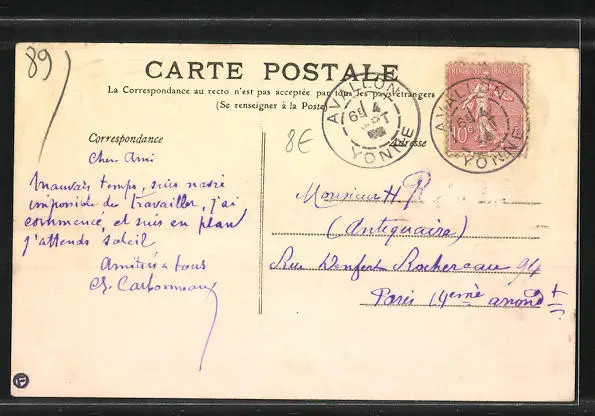 89
CARTE POSTALE
La Correspondance au recto n'est pas acceptée par tous les pays étrangers
(Se renseigner à la Poste)
AVALLON
YONNE
REPUBLIQUE FRANÇAISE
10c
AVALLON
YONNE
Correspondance
8€
Adresse
Cher Ami
Mauvais temps, suis navré
impossible de travailler, j'ai
commencé, et suis en plan
j'attends soleil
Amitiés à tous
Ch. Carbonneaux
Monsieur H
(Antiquaire)
Rue Denfert Rochereau 94
Paris 14eme arrond t